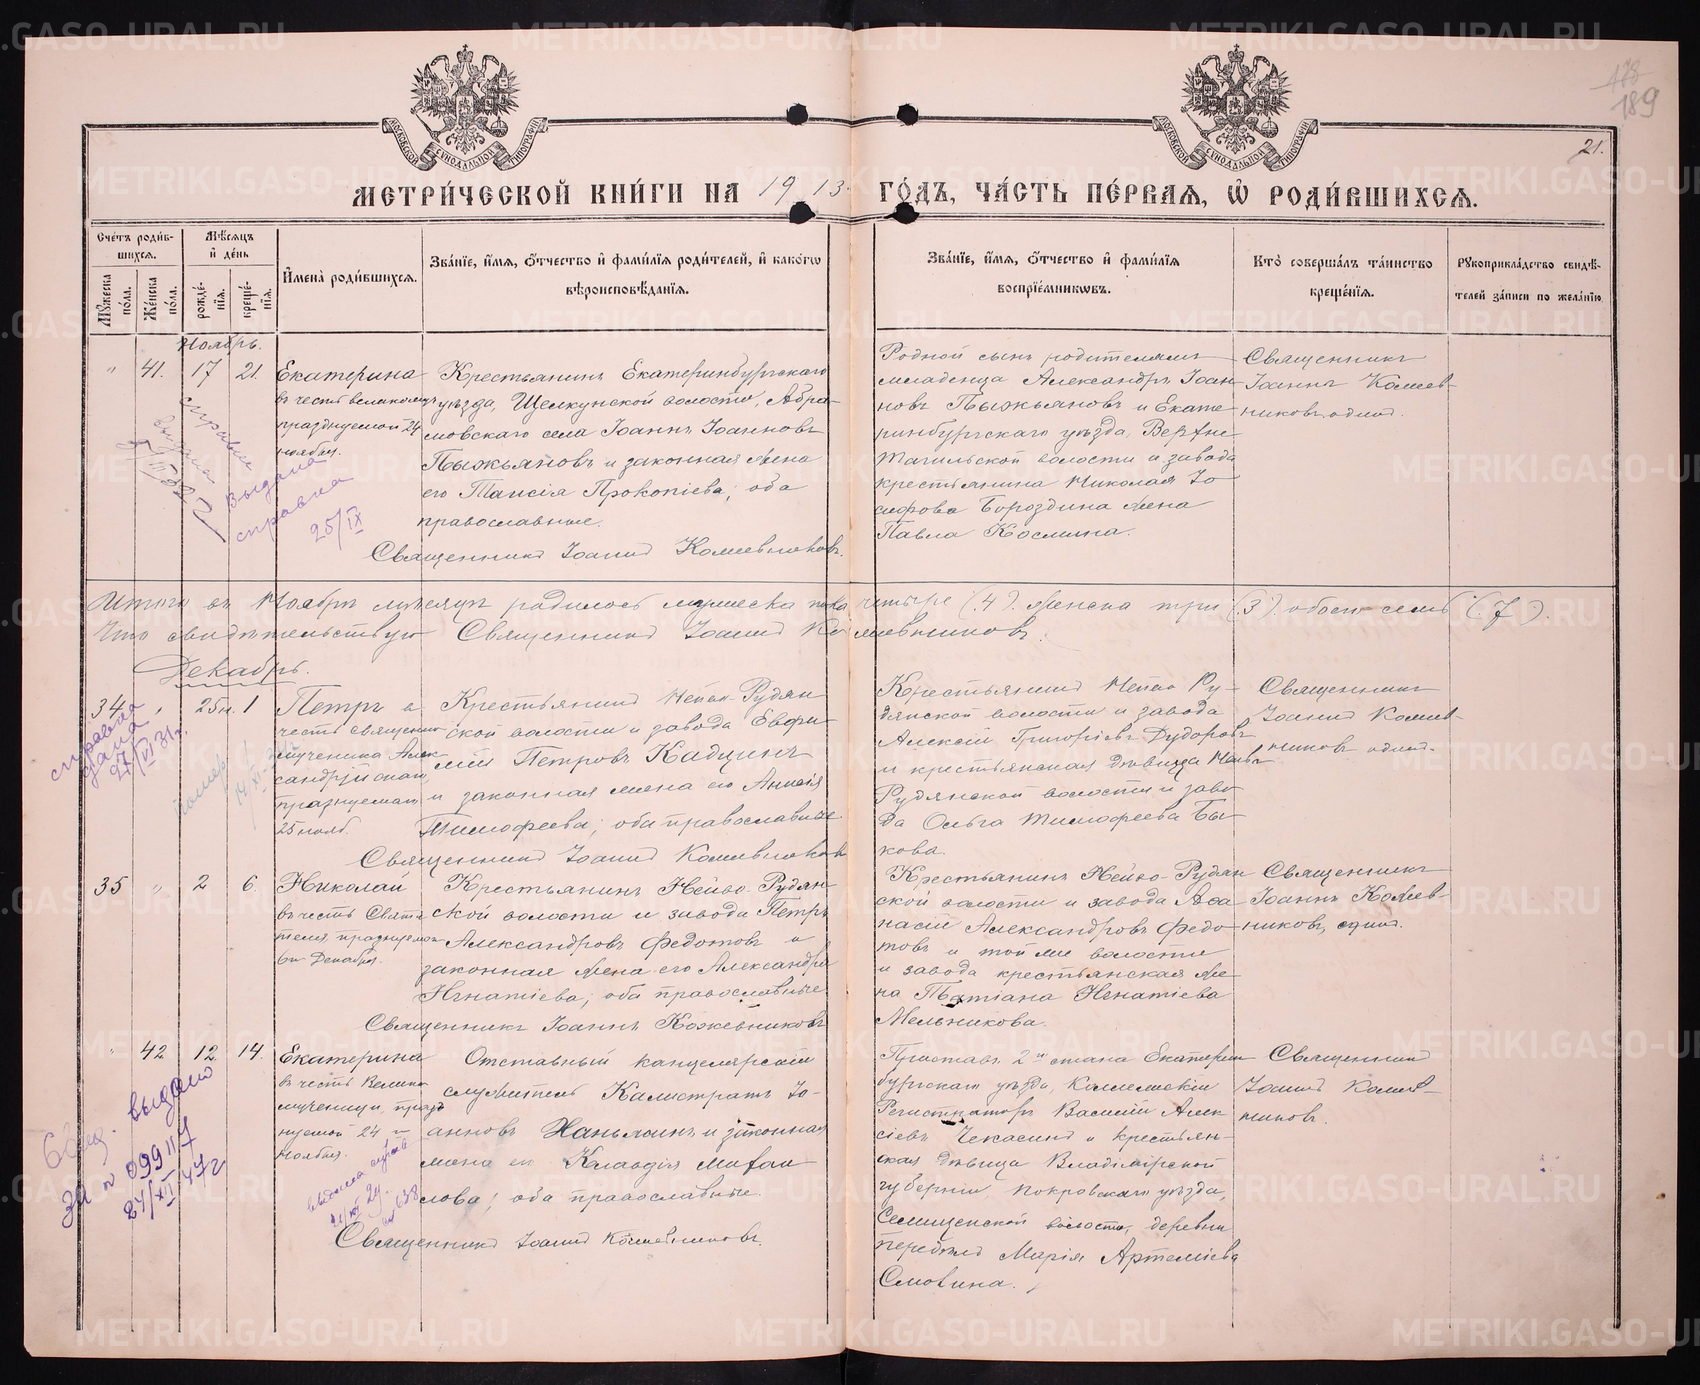 189
21.
МОСКОВСКОЙ СУНОДАЛЬНОЙ ТИПОГРАФІИ
МОСКОВСКОЙ СУНОДАЛЬНОЙ ТИПОГРАФІИ
МЕТРИ́ЧЕСКОЙ КНИ́ГИ НА 1913 ГО́ДЪ, ЧА́СТЬ ПЕ́РВАЯ, Ѡ РОДИ́ВШИХСЯ.
Сче́тъ роди́в-
шихся.
Мѣ́сяцъ
и҆ де́нь
Му́жеска по́ла.
Же́нска по́ла.
рожде́-
нїя.
креще́-
нїя.
И҆мена̀ роди́вшихся.
Зва́нїе, и҆́мя, ѻ҆́тчество и҆ фами́лїя роди́телей, и҆ како́гѡ
вѣроисповѣ́данїя.
Зва́нїе, и҆́мя, ѻ҆́тчество и҆ фами́лїя
воспрїе́мникѡвъ.
Кто̀ соверша́лъ та́инство
креще́нїя.
Рукоприкла́дство свидѣ́-
телей за́писи по жела́нїю.
Ноябрь.
" 41. 17 21.
Екатерина
въ честь великомуч
празднуемой 24
ноября.
Крестьянинъ Екатеринбургскаго
уѣзда, Щелкунской волости, Абра-
мовскаго села Іоаннъ Іоанновъ
Пыжьяновъ и законная жена
его Таисія Прокопіева; оба
православные.
Священникъ Іоаннъ Кожевниковъ.
Родной сынъ родителямъ
младенца Александръ Іоан-
новъ Пыжьяновъ и Екате-
ринбургскаго уѣзда, Верхне-
Тагильской волости и завода
крестьянина Николая Іо-
сифова Бороздина жена
Павла Космина.
Священникъ
Іоаннъ Кожев-
никовъ одинъ.
справка
выдана
Выдана
справка
25/IX
Итого въ Ноябрѣ мѣсяцѣ родилось мужеска пола четыре (4). женска три (3). обоего семь (7).
Что свидѣтельствую Священникъ Іоаннъ Кожевниковъ.
Декабрь.
34 " 25н. 1
Петръ въ
честь священно-
мученика Алек-
сандрійскаго,
празнуемаго
25 нояб.
Крестьянинъ Нейво-Рудян-
ской волости и завода Евфи-
мій Петровъ Кадцинъ
и законная жена его Анисія
Тимофеева; оба православные.
Священникъ Іоаннъ Кожевниковъ
Крестьянинъ Нейво-Ру-
дянской волости и завода
Алексій Григоріевъ Дудоровъ
и крестьянская дѣвица Нейво-
Рудянской волости и заво-
да Ольга Тимофеева Бы-
кова.
Священникъ
Іоаннъ Кожев-
никовъ одинъ.
справка
дана
27/VI 31г.
35 " 2 6.
Николай
въ честь Святи-
теля, празднуемаго
6го Декабря.
Крестьянинъ Нейво-Рудян-
ской волости и завода Петръ
Александровъ Федотовъ и
законная жена его Александра
Игнатіева; оба православные
Священникъ Іоаннъ Кожевниковъ
Крестьянинъ Нейво-Рудян-
ской волости и завода Аѳа-
насій Александровъ Федо-
товъ и той же волости
и завода крестьянская же-
на Татіана Игнатіева
Мельникова.
Священникъ
Іоаннъ Кожев-
никовъ, одинъ.
" 42 12 14.
Екатерина
въ честь Велико-
мученицы, празд-
нуемой 24го
Ноября.
Отставный канцелярскій
служитель Калистратъ Іо-
анновъ Наньжинъ и законная
жена его Клавдія Михаи-
лова; оба православные.
Священникъ Іоаннъ Кожевниковъ.
Приставъ 2го стана Екатерин-
бургскаго уѣзда, Коллежскій
Регистраторъ Василій Алек-
сіевъ Чекасинъ и крестьян-
ская дѣвица Владимірской
губерніи, Покровскаго уѣзда,
волости, деревни
Марія Артеміева
Смовина.
Священникъ
Іоаннъ Кожев-
никовъ.
выдано
за № 099117
27/XII 47г
METRIKI.GASO-URAL.RU